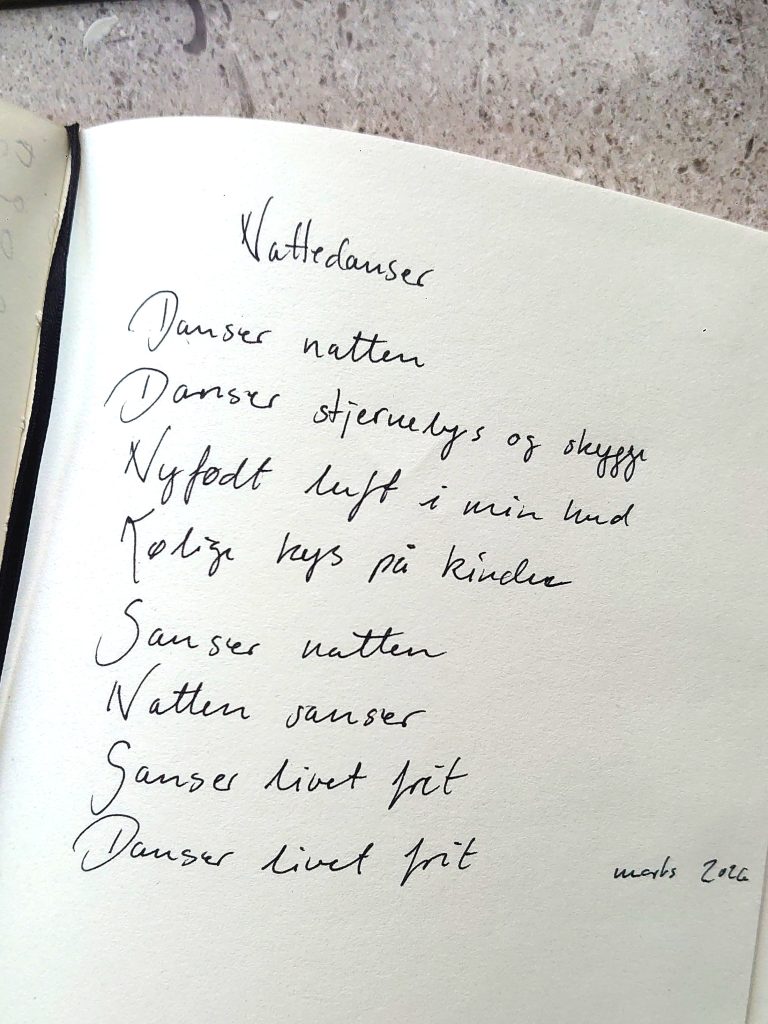 Nattedanser
Danser natten
Danser stjernelys og skygge
Nyfødt luft i min hud
Kølige kys på kinden
Sanser natten
Natten sanser
Sanser livet frit
Danser livet frit
marts